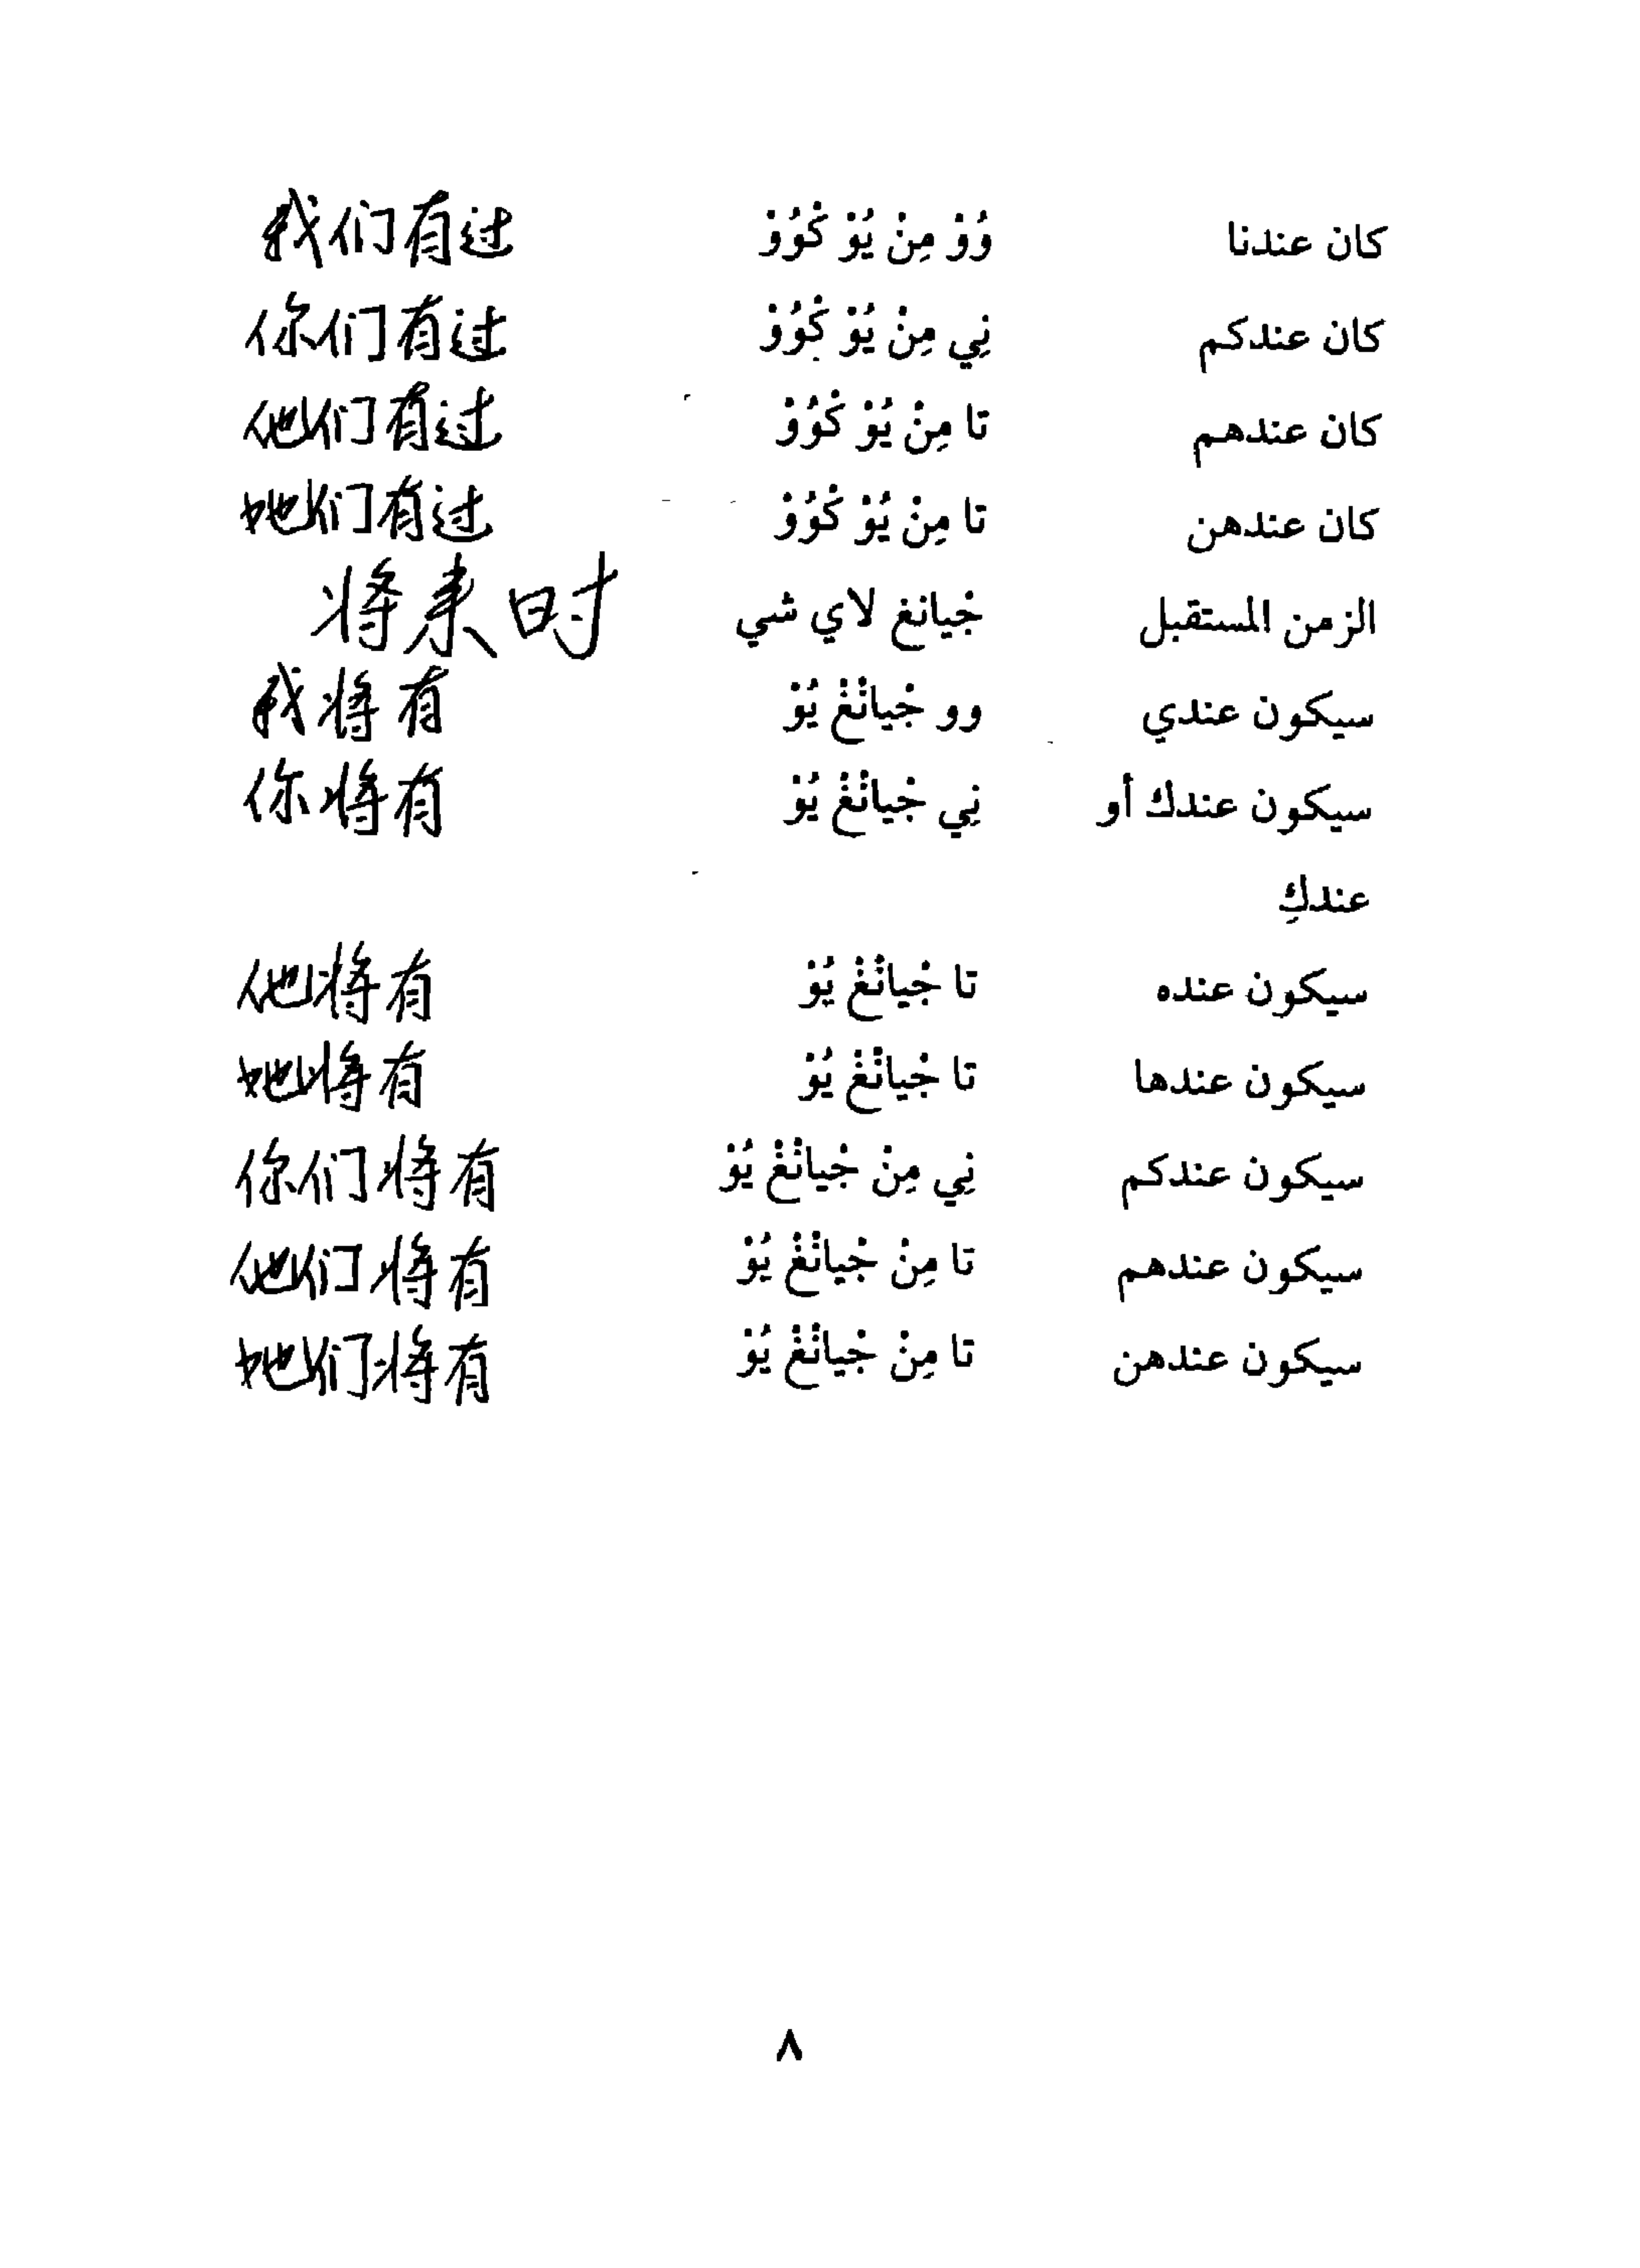 كان عندنا وُوْ مِنْ يُوْ كْوُوْ 我们有过
كان عندكم نِي مِنْ يُوْ كْوُوْ 你们有过
كان عندهم تا مِنْ يُوْ كْوُوْ 他们有过
كان عندهن تا مِنْ يُوْ كْوُوْ 她们有过
الزمن المستقبل جْيانغ لاي شي 将来时
سيكون عندي وو جْيانْغْ يُوْ 我将有
سيكون عندك أو نِي جْيانْغْ يُوْ 你将有
عندكِ
سيكون عنده تا جْيانْغْ يُوْ 他将有
سيكون عندها تا جْيانْغْ يُوْ 她将有
سيكون عندكم نِي مِنْ جْيانْغْ يُوْ 你们将有
سيكون عندهم تا مِنْ جْيانْغْ يُوْ 他们将有
سيكون عندهن تا مِنْ جْيانْغْ يُوْ 她们将有
٨